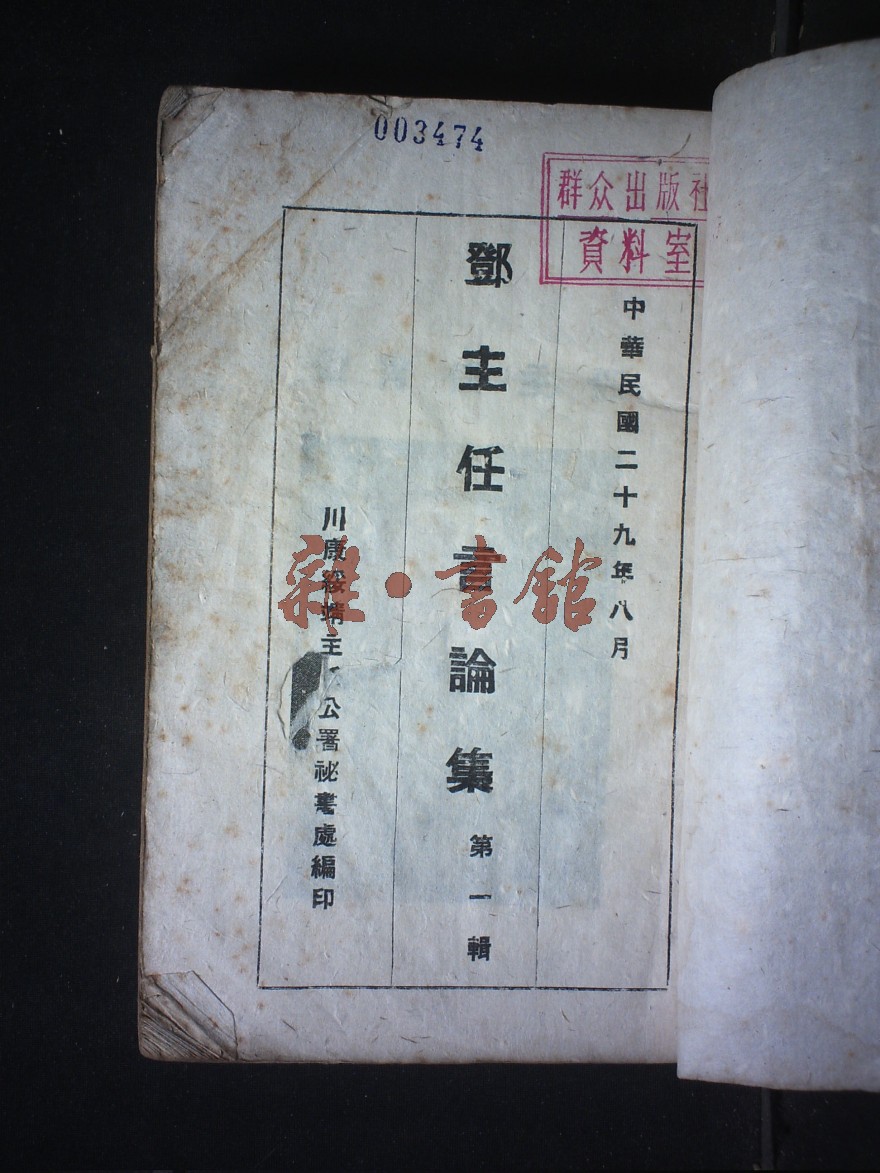 003474
群众出版社
資料室
中華民國二十九年八月
鄧主任言論集 第一輯
川康綏靖主 公署祕書處編印
雜·書館